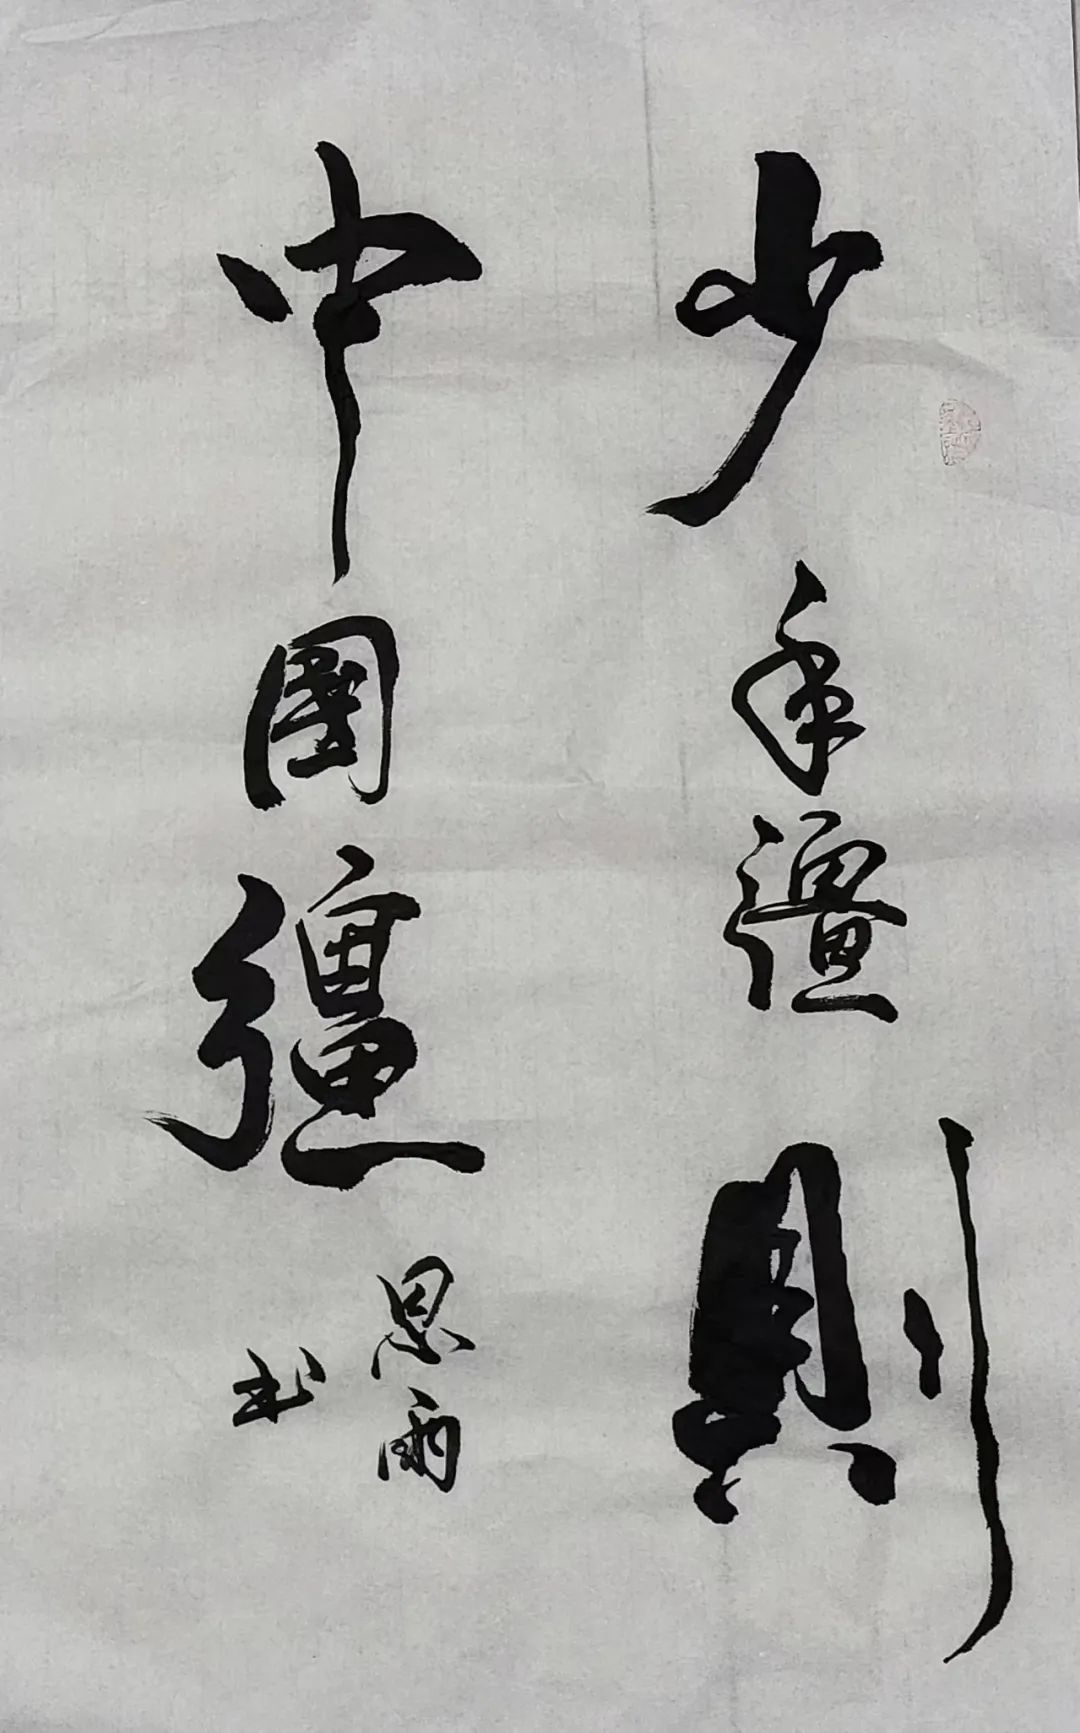 少年彊則
中國彊
思雨
书